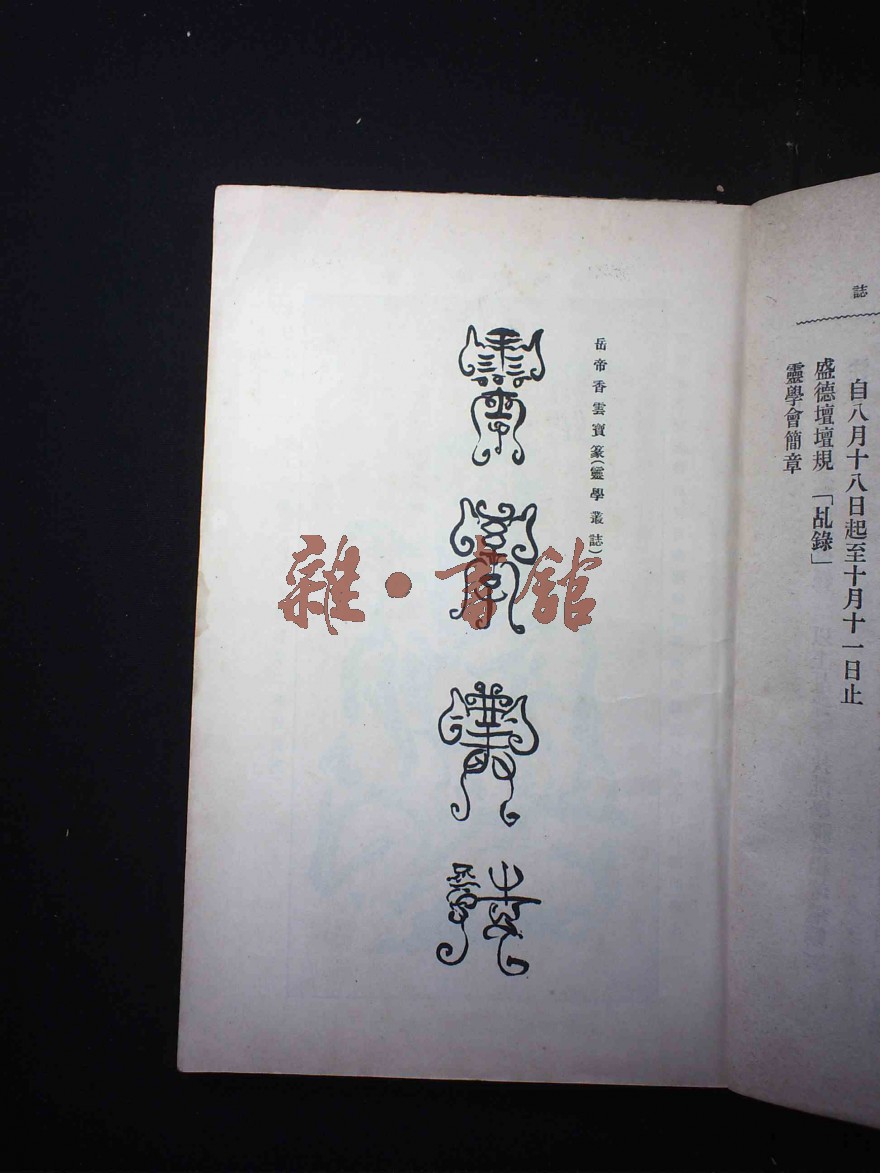 誌
自八月十八日起至十月十一日止
盛德壇壇規　「乩錄」
靈學會簡章
岳帝香雲寶篆（靈學叢誌）
雜・書館